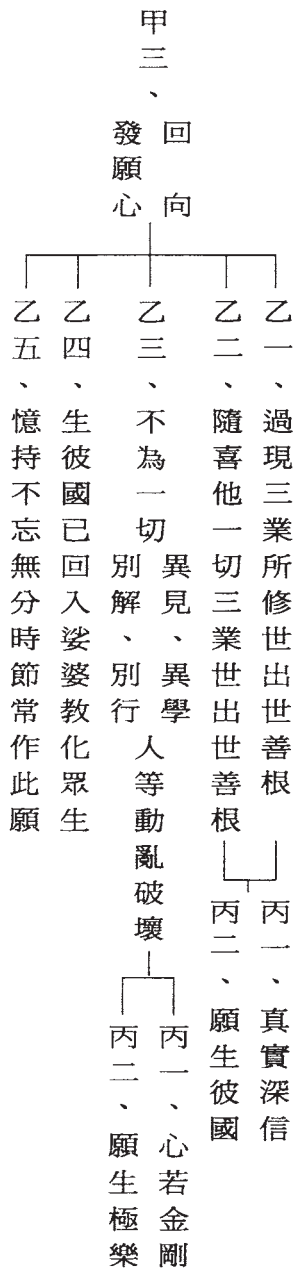 甲三、回向發願心
乙一、過現三業所修世出世善根
乙二、隨喜他一切三業世出世善根
丙一、真實深信
丙二、願生彼國
乙三、不為一切異見、異學別解、別行人等動亂破壞
丙一、心若金剛
丙二、願生極樂
乙四、生彼國已回入娑婆教化眾生
乙五、憶持不忘無分時節常作此願